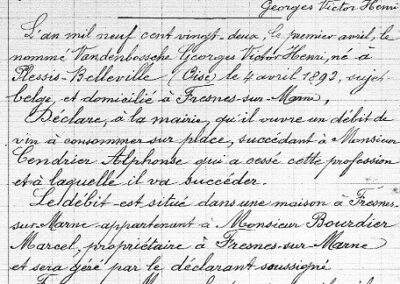 Georges Victor Henri
L'an mil neuf cent vingt-deux, le premier avril, le
nommé Vandenbossche Georges Victor Henri, né à
Plessis-Belleville (Oise) le 4 avril 1892, sujet
belge, et domicilié à Fresnes-sur-Marne,
Déclare, à la mairie, qu'il ouvre un débit de
vin à consommer sur place, succédant à Monsieur
Cendrier Alphonse qui a cessé cette profession
et à laquelle il va succéder.
Le débit est situé dans une maison à Fresnes-
sur-Marne appartenant à Monsieur Bourdier
Marcel, propriétaire à Fresnes-sur-Marne
et sera géré par le déclarant soussigné